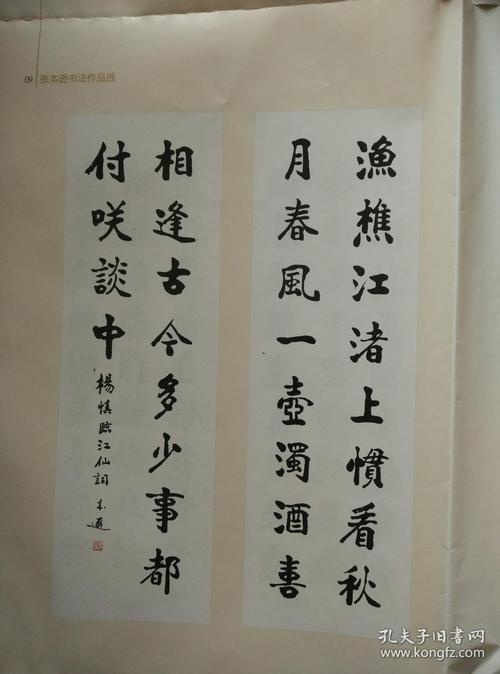 09 张本逊书法作品选
漁樵江渚上慣看秋
月春風一壺濁酒喜
相逢古今多少事都
付咲談中
楊慎臨江仙詞 本遜
孔夫子旧书网
www.kongfz.com